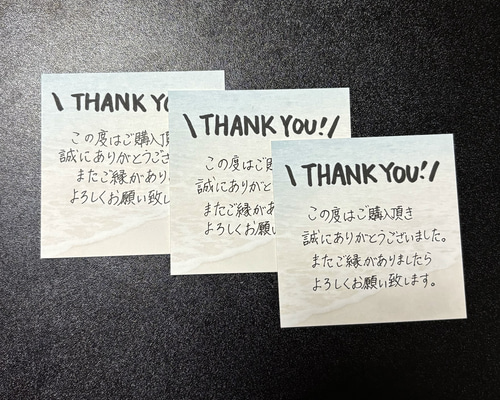 \ THANK YO
この度はご購入頂
誠にありがとうござ
またご縁があり
よろしくお願い致し
\ THANK YOU! /
この度はご購
誠にありがと
またご縁があ
よろしくお願い
\ THANK YOU! /
この度はご購入頂き
誠にありがとうございました。
またご縁がありましたら
よろしくお願い致します。